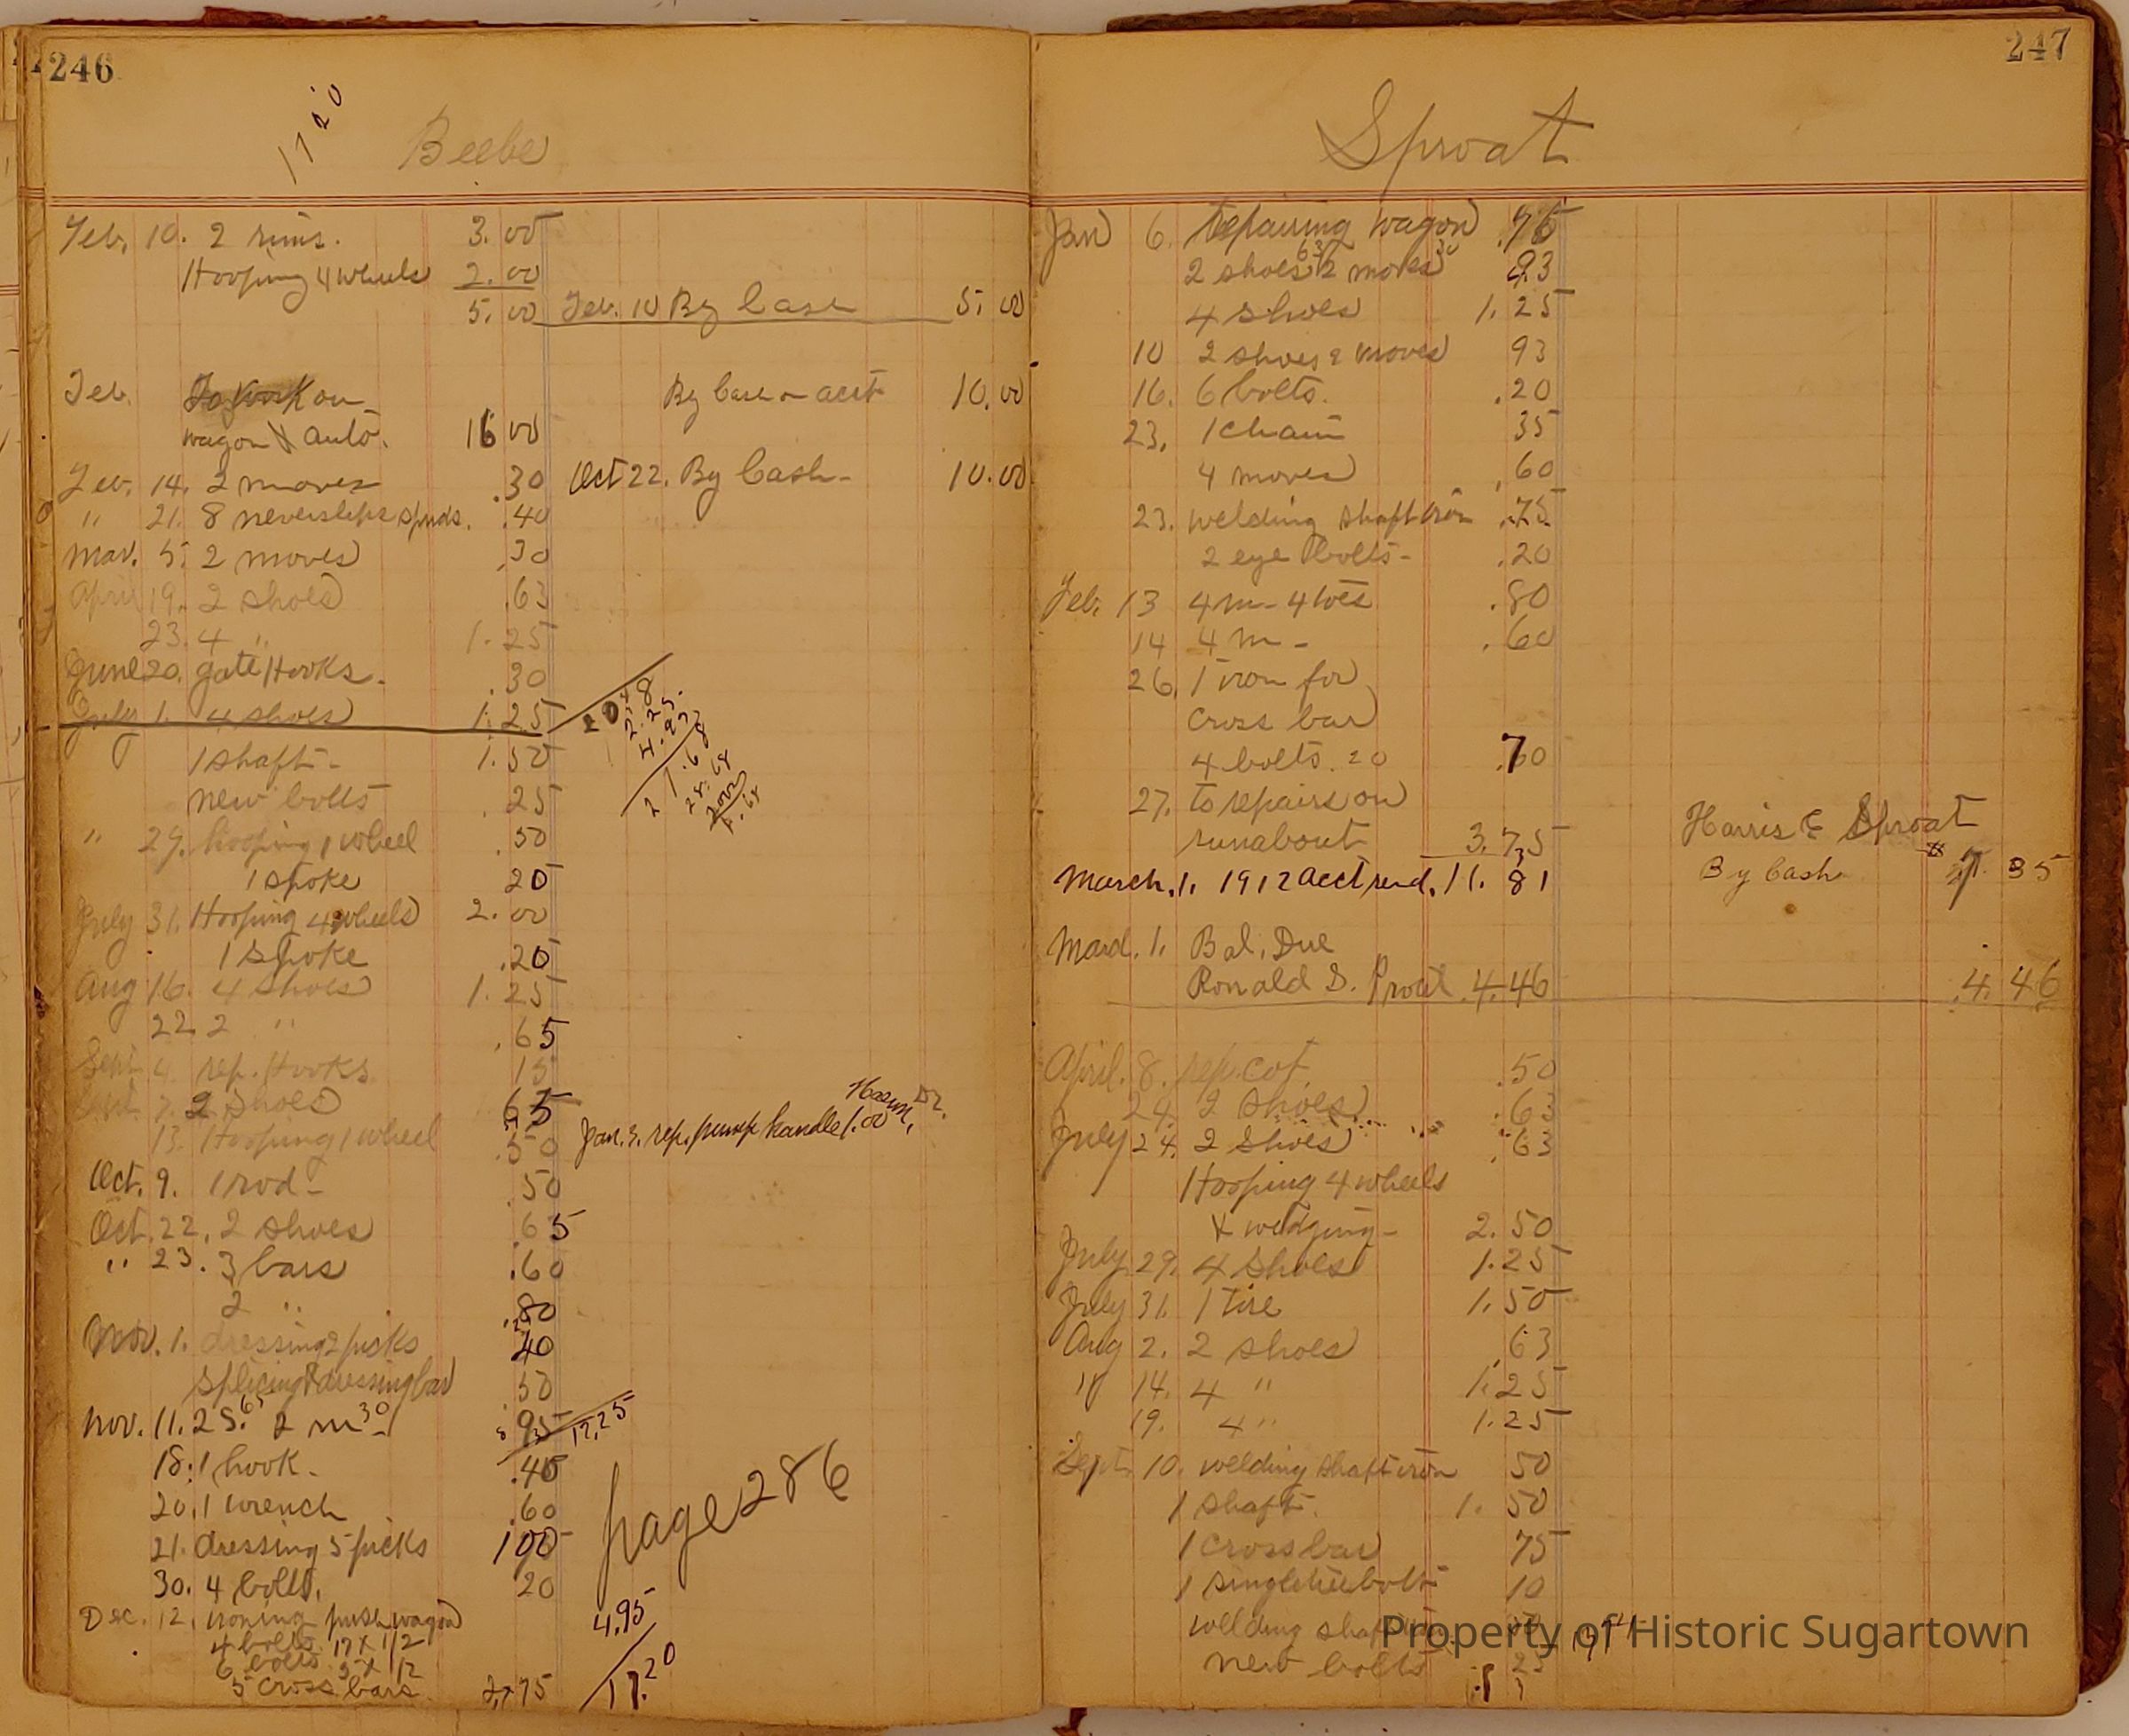 246
17 20
Beebe
Feb. 10. 2 rims. 3.00
Hooping 4 wheels 2.00
5.00 Feb. 10 By Cash 5.00
Feb. To work on By Cash on acct 10.00
wagon & auto. 16 00
Feb. 14. 2 moves .30 Oct 22. By Cash - 10.00
" 21. 8 neverslips spuds. .40
Mar. 5. 2 moves .30
April 19. 2 shoes .63
23. 4 " 1.25
June 20. gate Hooks. .30
July 1. 4 shoes 1.25
1 shaft - 1.50
new bolts .25
" 29. hooping 1 wheel .50
1 spoke 20
July 31. Hooping 4 wheels 2.00
1 spoke .20
Aug 16. 4 shoes 1.25
22. 2 " .65
Sept 4. rep. Hooks 15
Sept. 7. 2 shoes 65
Jan. 3. rep. pump handle 1.00
13. Hooping 1 wheel .50
Oct. 9. 1 rod - 50
Oct. 22. 2 shoes .65
" 23. 3 bars .60
2 " .80
Nov. 1. dressing 2 picks 40
splicing & dressing bar .50
Nov. 11. 2 S. 65 2 m 30 - 95
12.25
18. 1 hook - .40
20. 1 wrench .60
21. dressing 5 picks 1 00
page 286
30. 4 bolts. 20
Dec. 12. ironing push wagon
4 bolts 17 x 1/2
6 bolts 5 x 1/2
5 cross bars 2.75
4.95
17.20
247
Sproat
Jan 6. repairing wagon .75
2 shoes 63 2 moves 30 .93
4 shoes 1.25
10 2 shoes 2 moves 93
16. 6 bolts. .20
23. 1 chain 35
4 moves .60
23. welding shaft iron .75
2 eye bolts - .20
Feb. 13 4 m - 4 toes .80
14 4 m - .60
26. 1 iron for
cross bar
4 bolts. 20 .70
27. to repairs on
runabout 3.75
Harris & Sproat
March. 1. 1912 acct rend. 11.81
By Cash 7.35
March. 1. Bal. Due
Ronald S. Proat 4.46 4.46
April. 8. rep. cot. .50
24. 2 shoes .63
July 24. 2 shoes .63
Hooping 4 wheels
& wedging - 2.50
July 29. 4 shoes 1.25
July 31. 1 tire 1.50
Aug 2. 2 shoes .63
" 14. 4 " 1.25
19. 4 " 1.25
Sept. 10. welding shaft iron 50
1 shaft. 1.50
1 cross bar 75
1 singletree bolt 10
welding shaft
new bolts 25
Property of Historic Sugartown